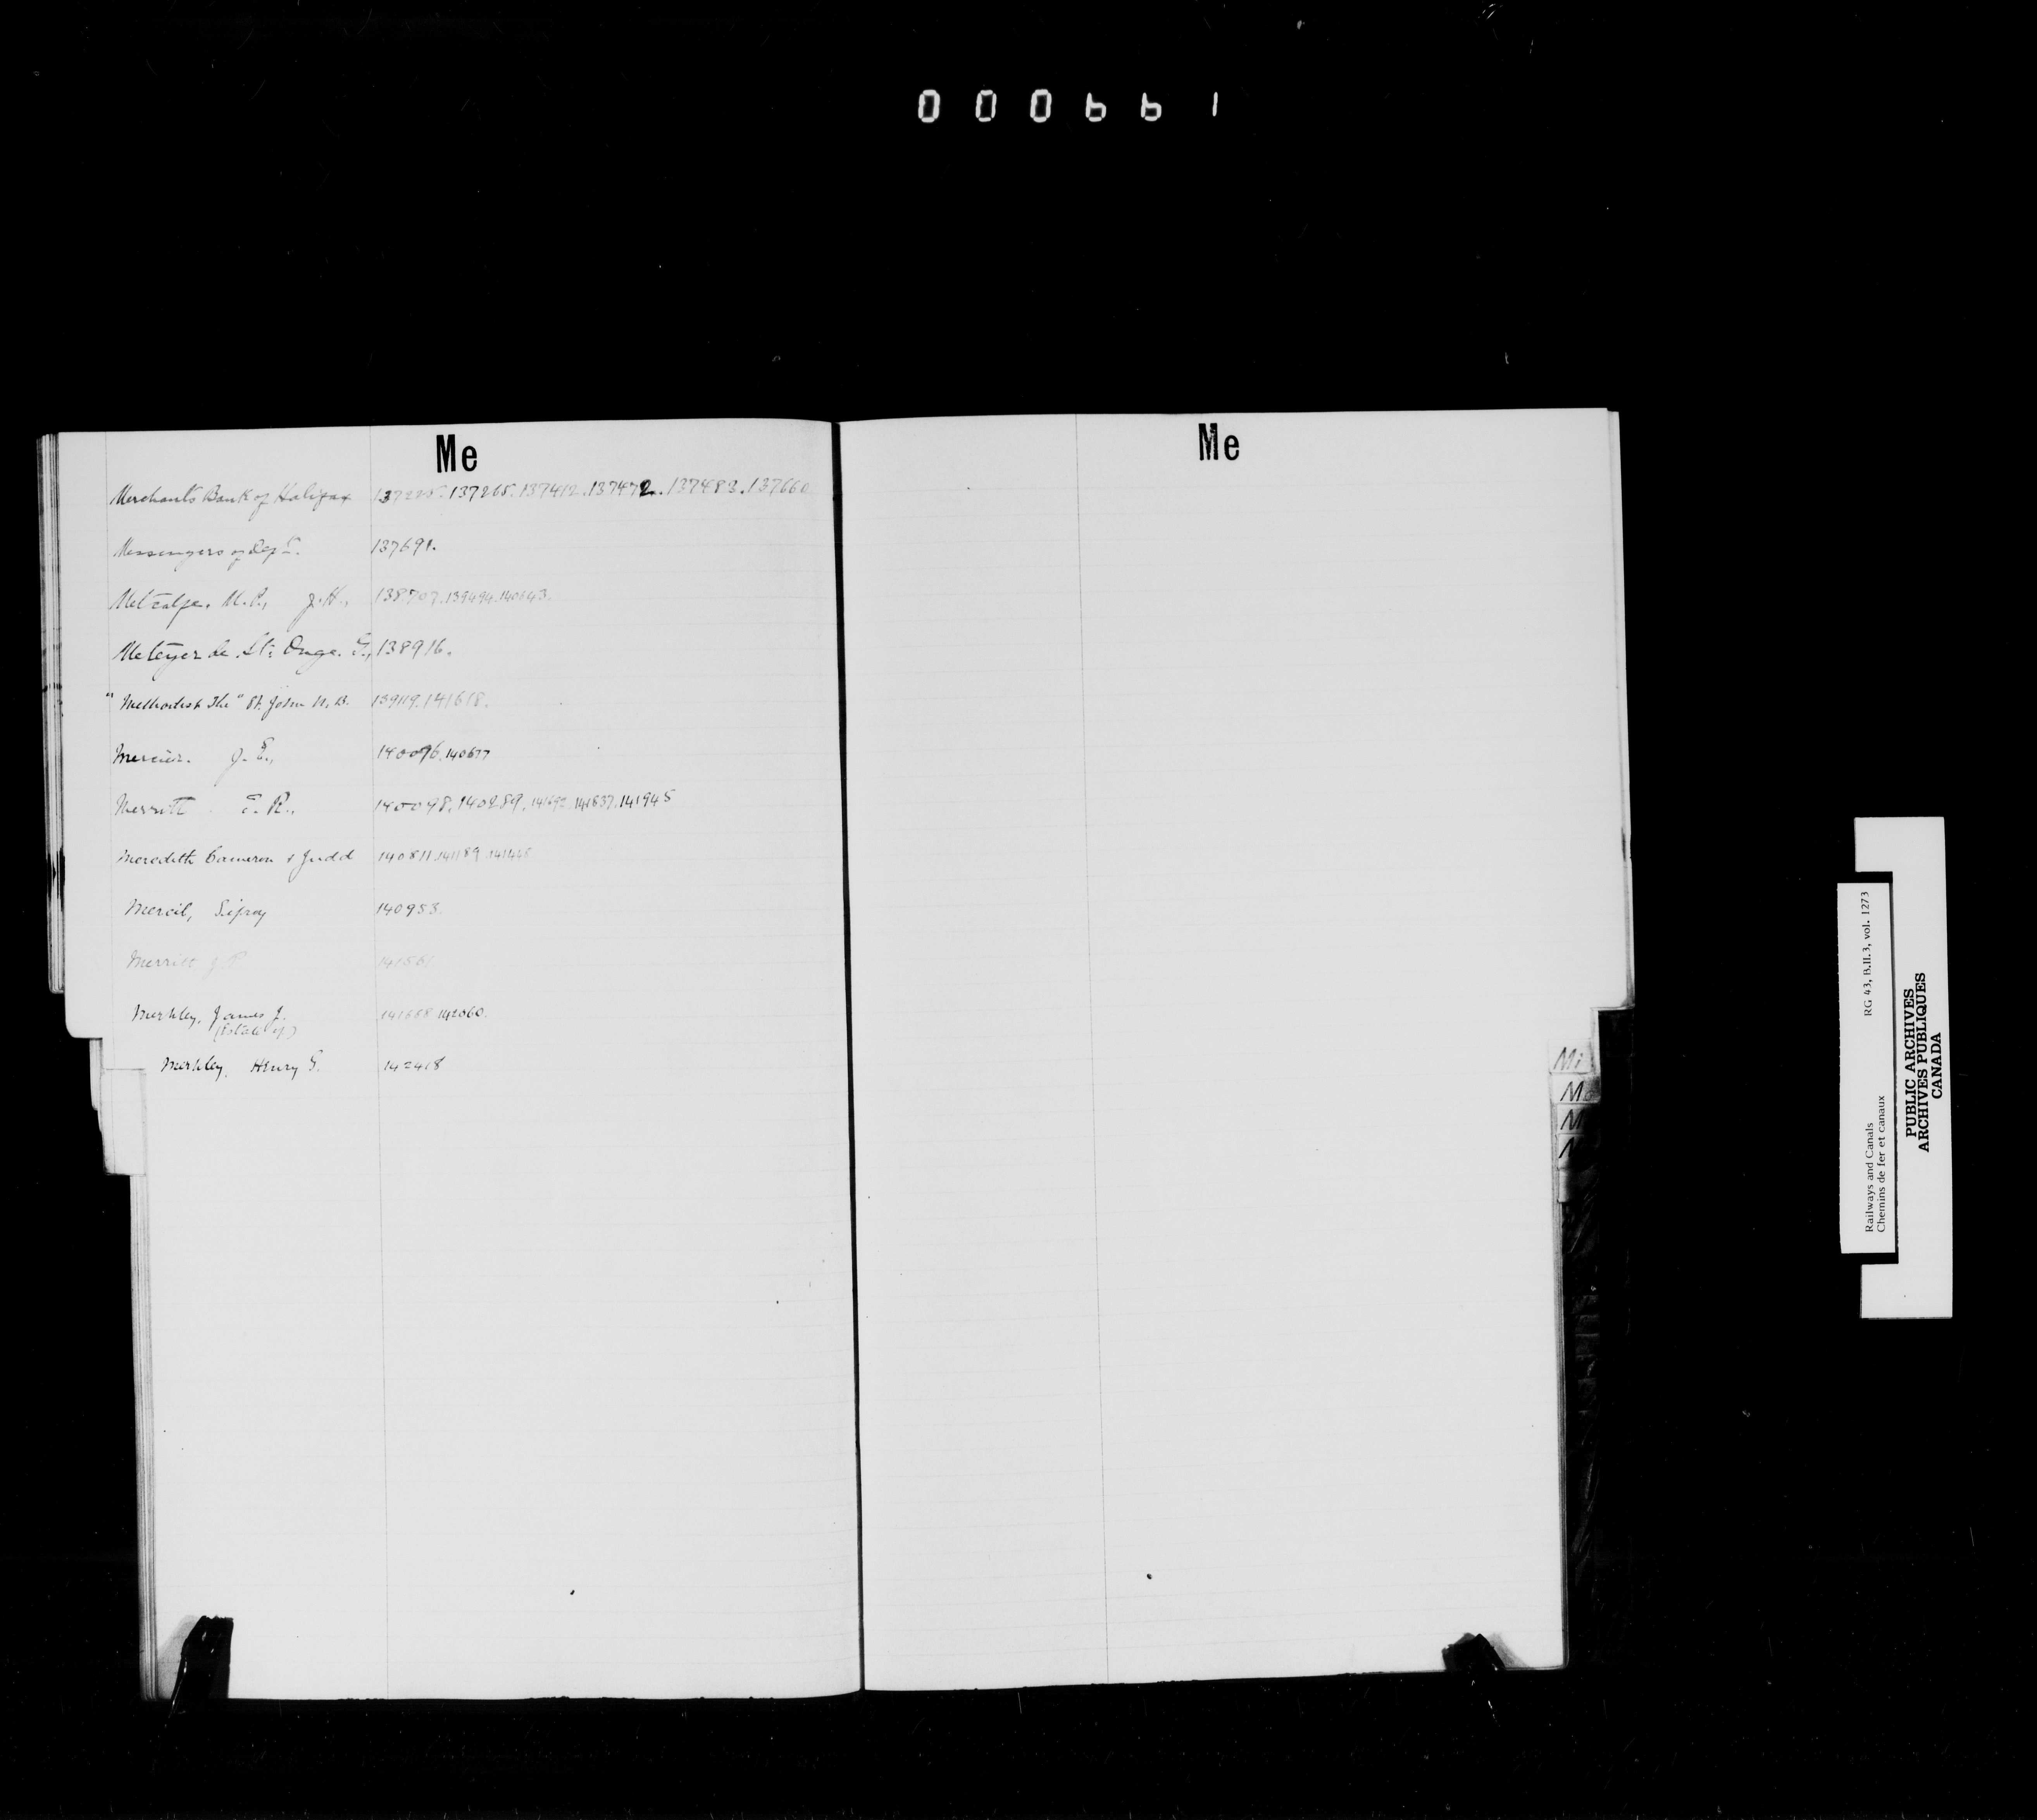 000661
Me
Merchants Bank of Halifax 137225. 137265. 137412. 137472. 137483. 137660
Messengers of Dept. 137691.
Metcalfe. M.P., J.H., 138707. 139494. 140643.
Meteyer de St. Onge. G., 138916.
"Methodist The" St. John N.B. 139119. 141618.
Mercier. J.E., 140096. 140677
Merritt. T.R., 140048. 140289. 141692. 141837. 141945
Meredith Cameron & Judd 140811. 141189. 141448
Mercil, Sifroy 140953.
Merritt J.P. 141561
Merkley, James J. 141668. 142060.
(Estate of)
Merkley, Henry G. 142418
Me
Mi
Mc
M
Railways and Canals RG 43, B.II.3, vol. 1273
Chemins de fer et canaux
PUBLIC ARCHIVES
ARCHIVES PUBLIQUES
CANADA